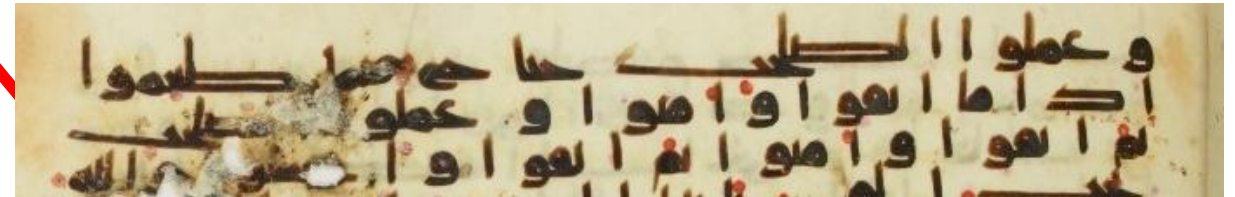 وعملوا الصلحت جناح فيما طعموا
اذا ما اتقوا وامنوا وعملوا الصلحت
ثم اتقوا وامنوا ثم اتقوا واحسنوا والله